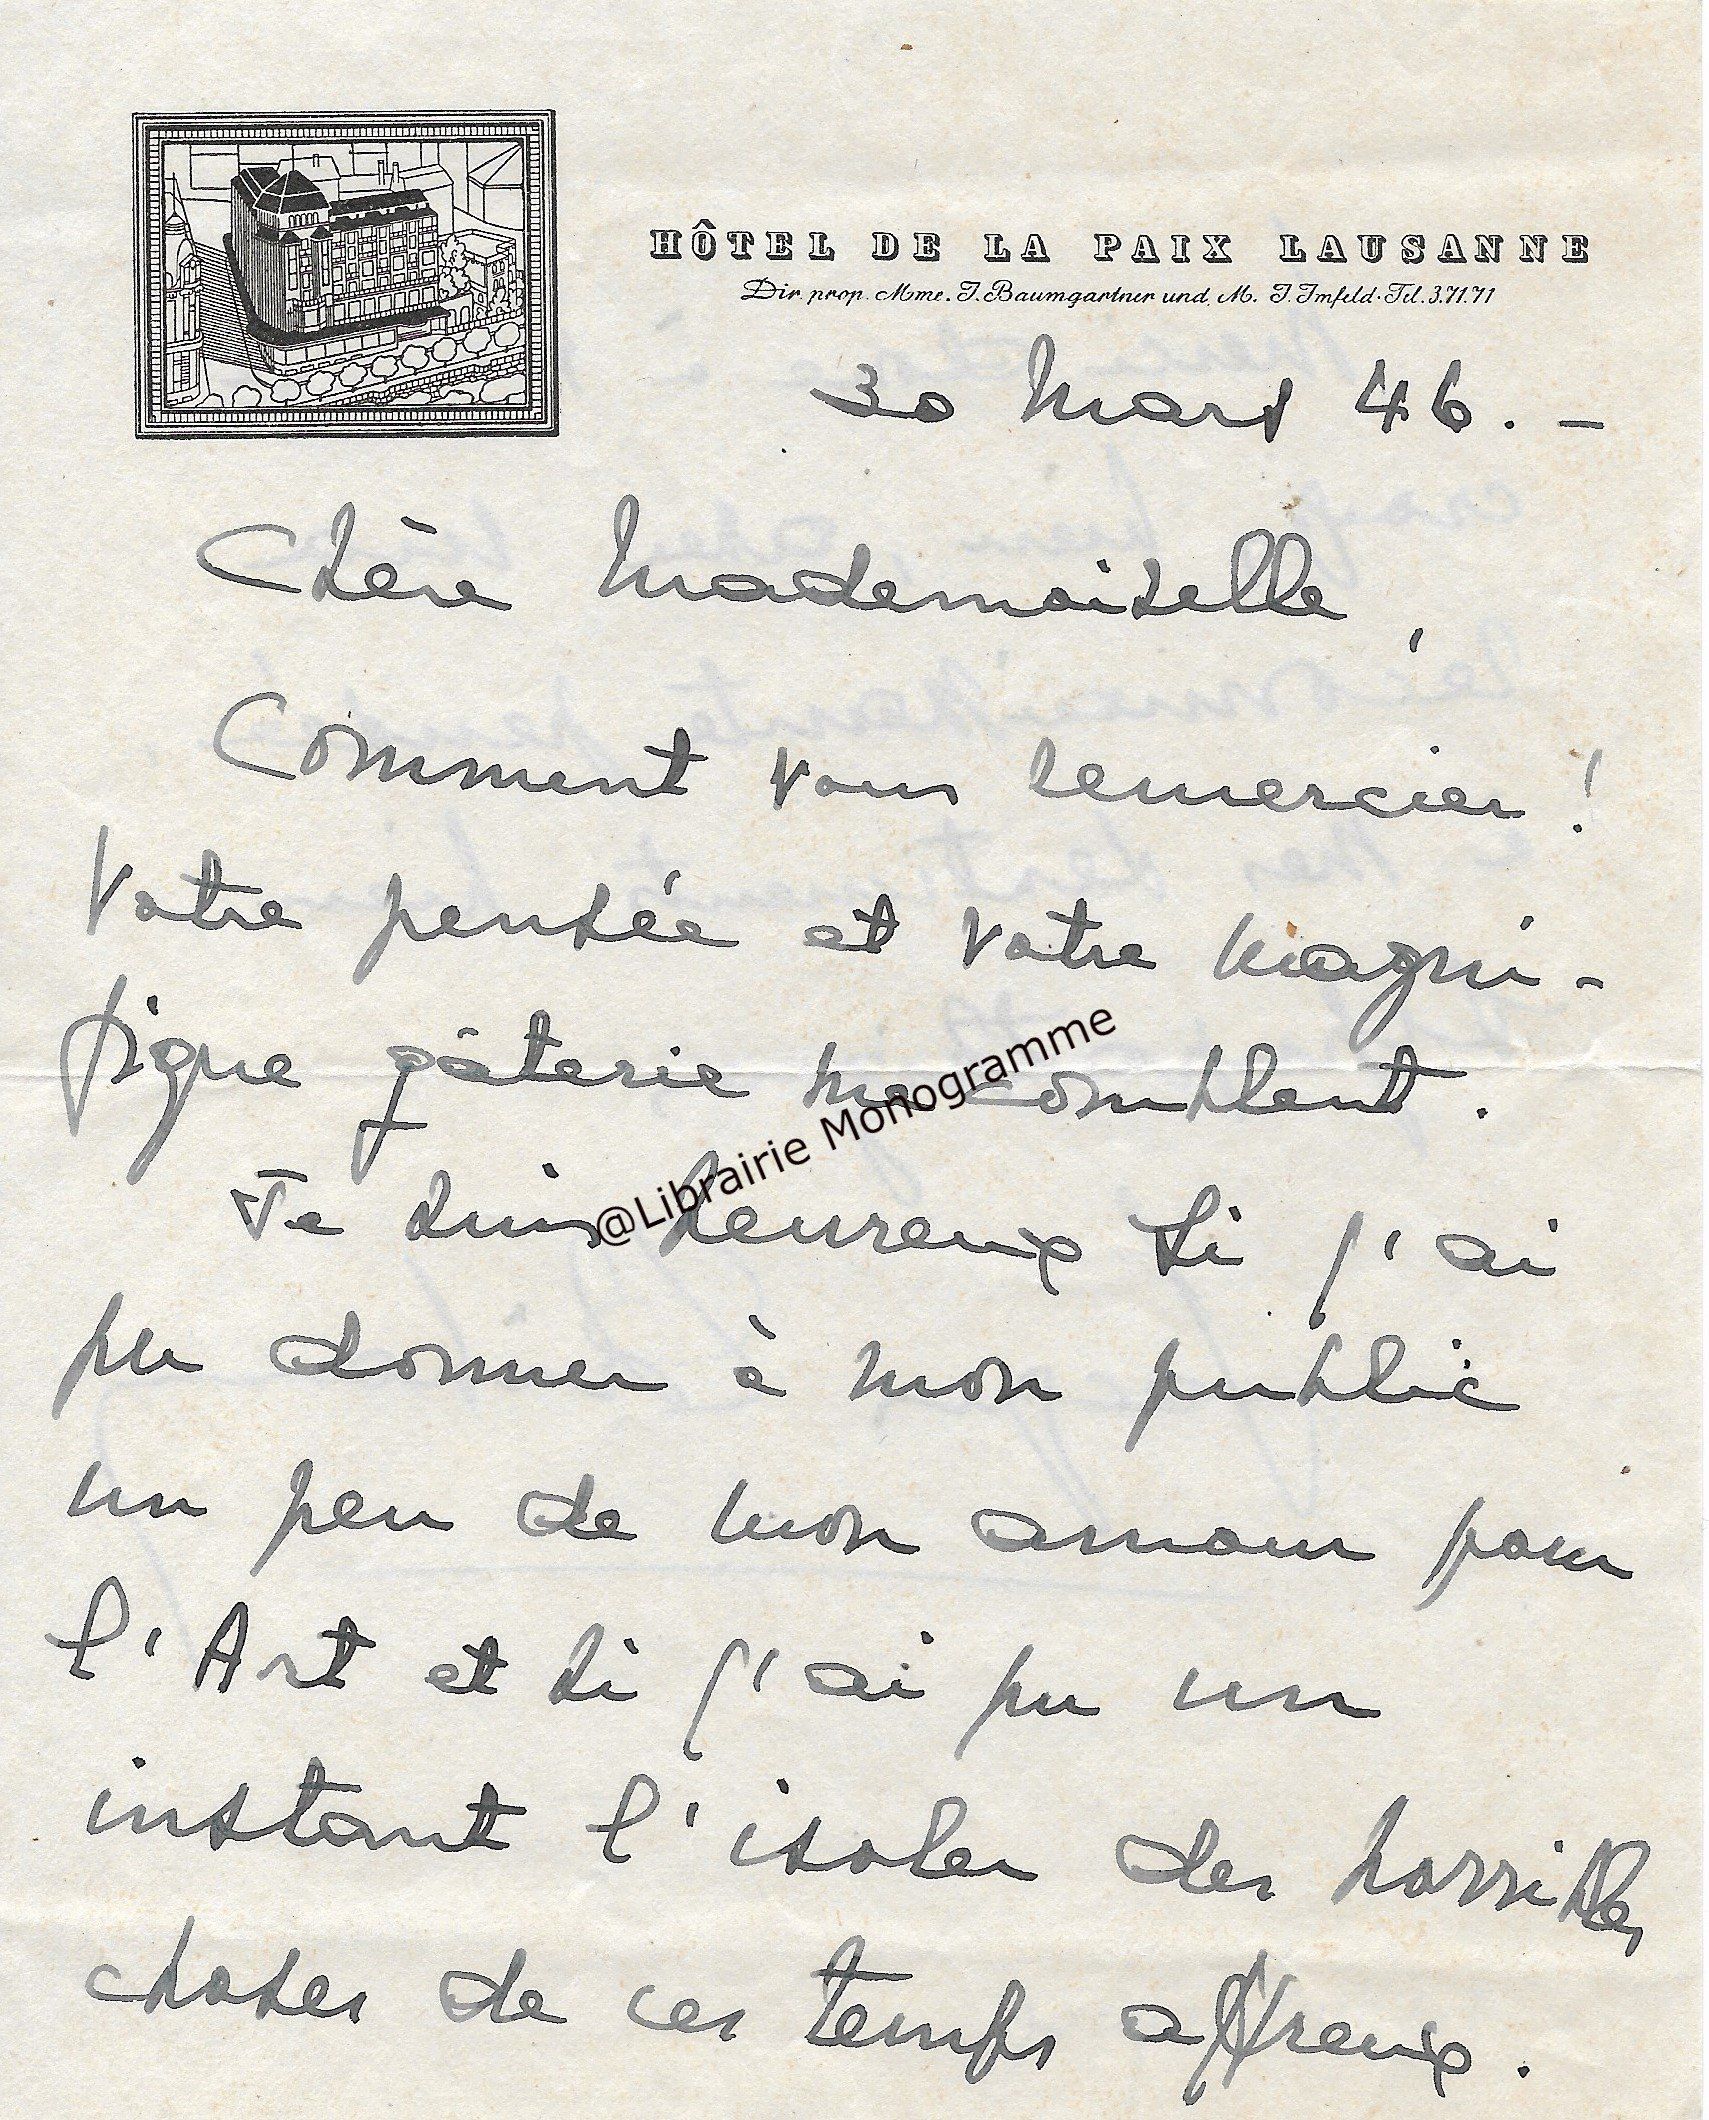 HÔTEL DE LA PAIX LAUSANNE
Dir. prop. Mme. J. Baumgartner und M. J. Imfeld · Tel. 3.71.71
30 Mars 46. –
Chère Mademoiselle,
Comment vous remercier !
Votre pensée et votre magni-
fique gâterie me comblent.
Je suis heureux si j'ai
pu donner à mon public
un peu de mon amour pour
l'Art et si j'ai pu un
instant l'isoler des horribles
choses de ces temps affreux.
@Librairie Monogramme